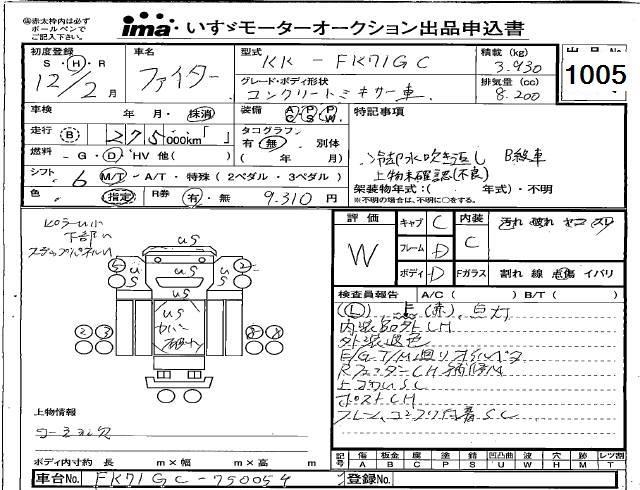 ㊟赤太枠内は必ず
ボールペンで
ご記入下さい。
ima いすゞモーターオークション出品申込書
初度登録
S・H・R
12/2月
車名
ファイター
型式
KK-FK71GC
グレード・ボディ形状
コンクリートミキサー車
積載 (kg)
3.930
排気量 (cc)
8.200
出品No
1005
車検 年 月・抹消
装備 AC PS PW
特記事項
走行 B 275 000km
タコグラフ
有・無 別体
( 年 月)
燃料 -G・D・HV 他( )
冷却水吹き返し B級車
上物未確認(不良)
シフト 6 M/T-A/T・特殊(2ペダル・3ペダル)
架装物年式:( 年式)・不明
※不明の場合は、不明に○をする。
色 指定 R券 有・無 9.310円
評価
W
キャブ C
フレーム D
ボディ D
内装
C
Fガラス
汚れ 破れ ヤニ スリ
割れ 線 点傷 イバリ
ピラー小
下部い
ステップパネルい
us
us
us
us
us
us
5
2
2
3
検査員報告 A/C( ) B/T( )
内装品外しCH
外装退色
E/G T/M廻りオイルベタ
上まわりSC
ポストCH
上物情報
ボディ内寸約 長 m×幅 m×高 m
記号
傷 A
板金 B
腐 C
塗 P
錆 S
凹凸曲 U
波 W
穴 H
跡 M
レツ割 T
車台No. FK71GC-750054
登録No.